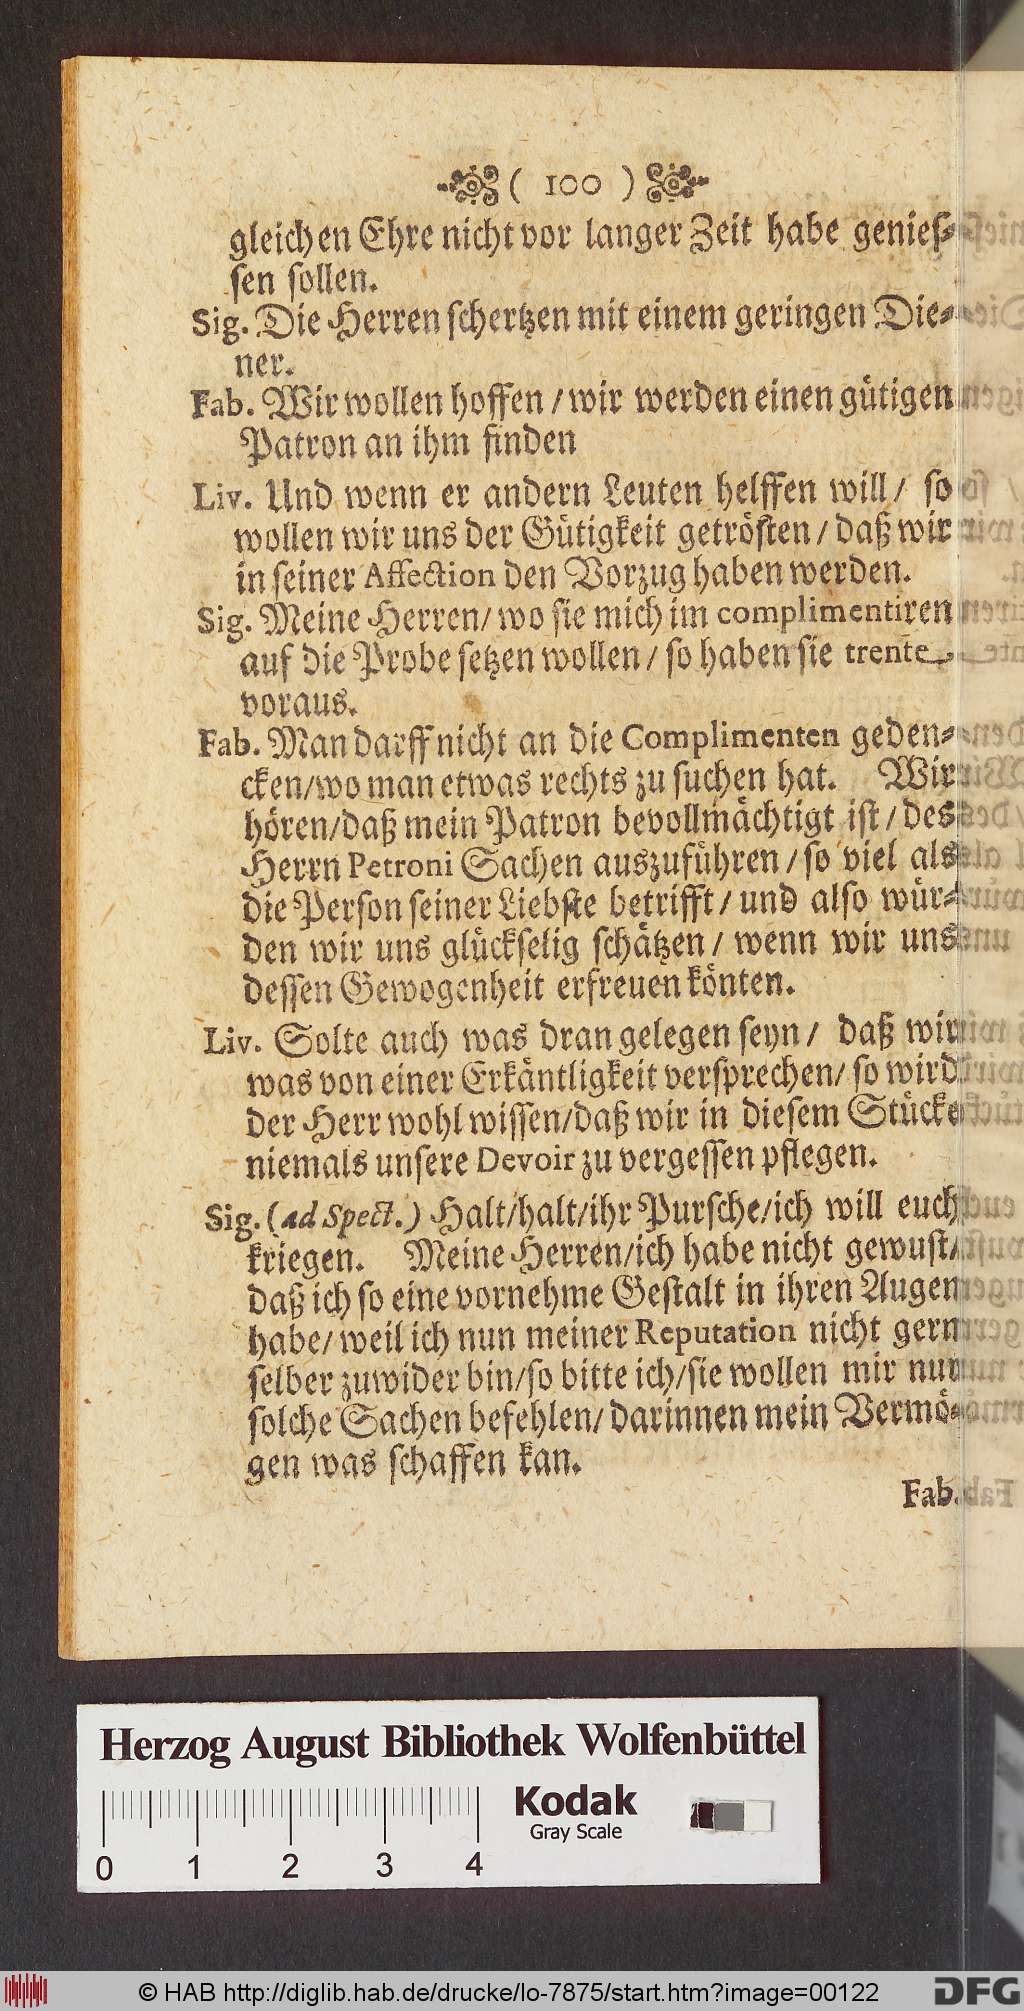 ( 100 )
gleichen Ehre nicht vor langer Zeit habe genies-
sen sollen.
Sig. Die Herren schertzen mit einem geringen Die-
ner.
Fab. Wir wollen hoffen / wir werden einen gütigen
Patron an ihm finden
Liv. Und wenn er andern Leuten helffen will / so
wollen wir uns der Gütigkeit getrösten / daß wir
in seiner Affection den Vorzug haben werden.
Sig. Meine Herren / wo sie mich im complimentiren
auf die Probe setzen wollen / so haben sie trente
voraus.
Fab. Man darff nicht an die Complimenten geden-
cken/wo man etwas rechts zu suchen hat. Wir
hören/daß mein Patron bevollmächtigt ist / des
Herrn Petroni Sachen auszuführen / so viel als
die Person seiner Liebste betrifft / und also wür-
den wir uns glückselig schätzen / wenn wir uns
dessen Gewogenheit erfreuen könten.
Liv. Solte auch was dran gelegen seyn / daß wir
was von einer Erkäntligkeit versprechen / so wird
der Herr wohl wissen/daß wir in diesem Stücke
niemals unsere Devoir zu vergessen pflegen.
Sig. (ad Spect.) Halt/halt/ihr Pursche/ich will euch
kriegen. Meine Herren/ich habe nicht gewust/
daß ich so eine vornehme Gestalt in ihren Augen
habe / weil ich nun meiner Reputation nicht gern
selber zuwider bin/so bitte ich/sie wollen mir nur
solche Sachen befehlen / darinnen mein Vermö-
gen was schaffen kan.
Fab.
Herzog August Bibliothek Wolfenbüttel
Kodak
Gray Scale
0 1 2 3 4
© HAB http://diglib.hab.de/drucke/lo-7875/start.htm?image=00122
DFG